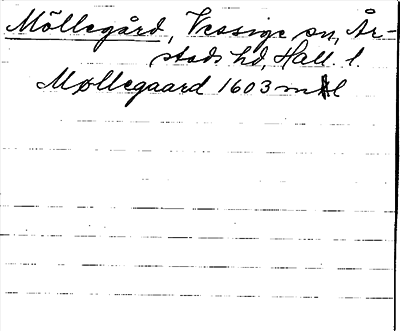 Möllegård, Vessige sn, År-
stads hd, Hall. l.
Møllegaard 1603